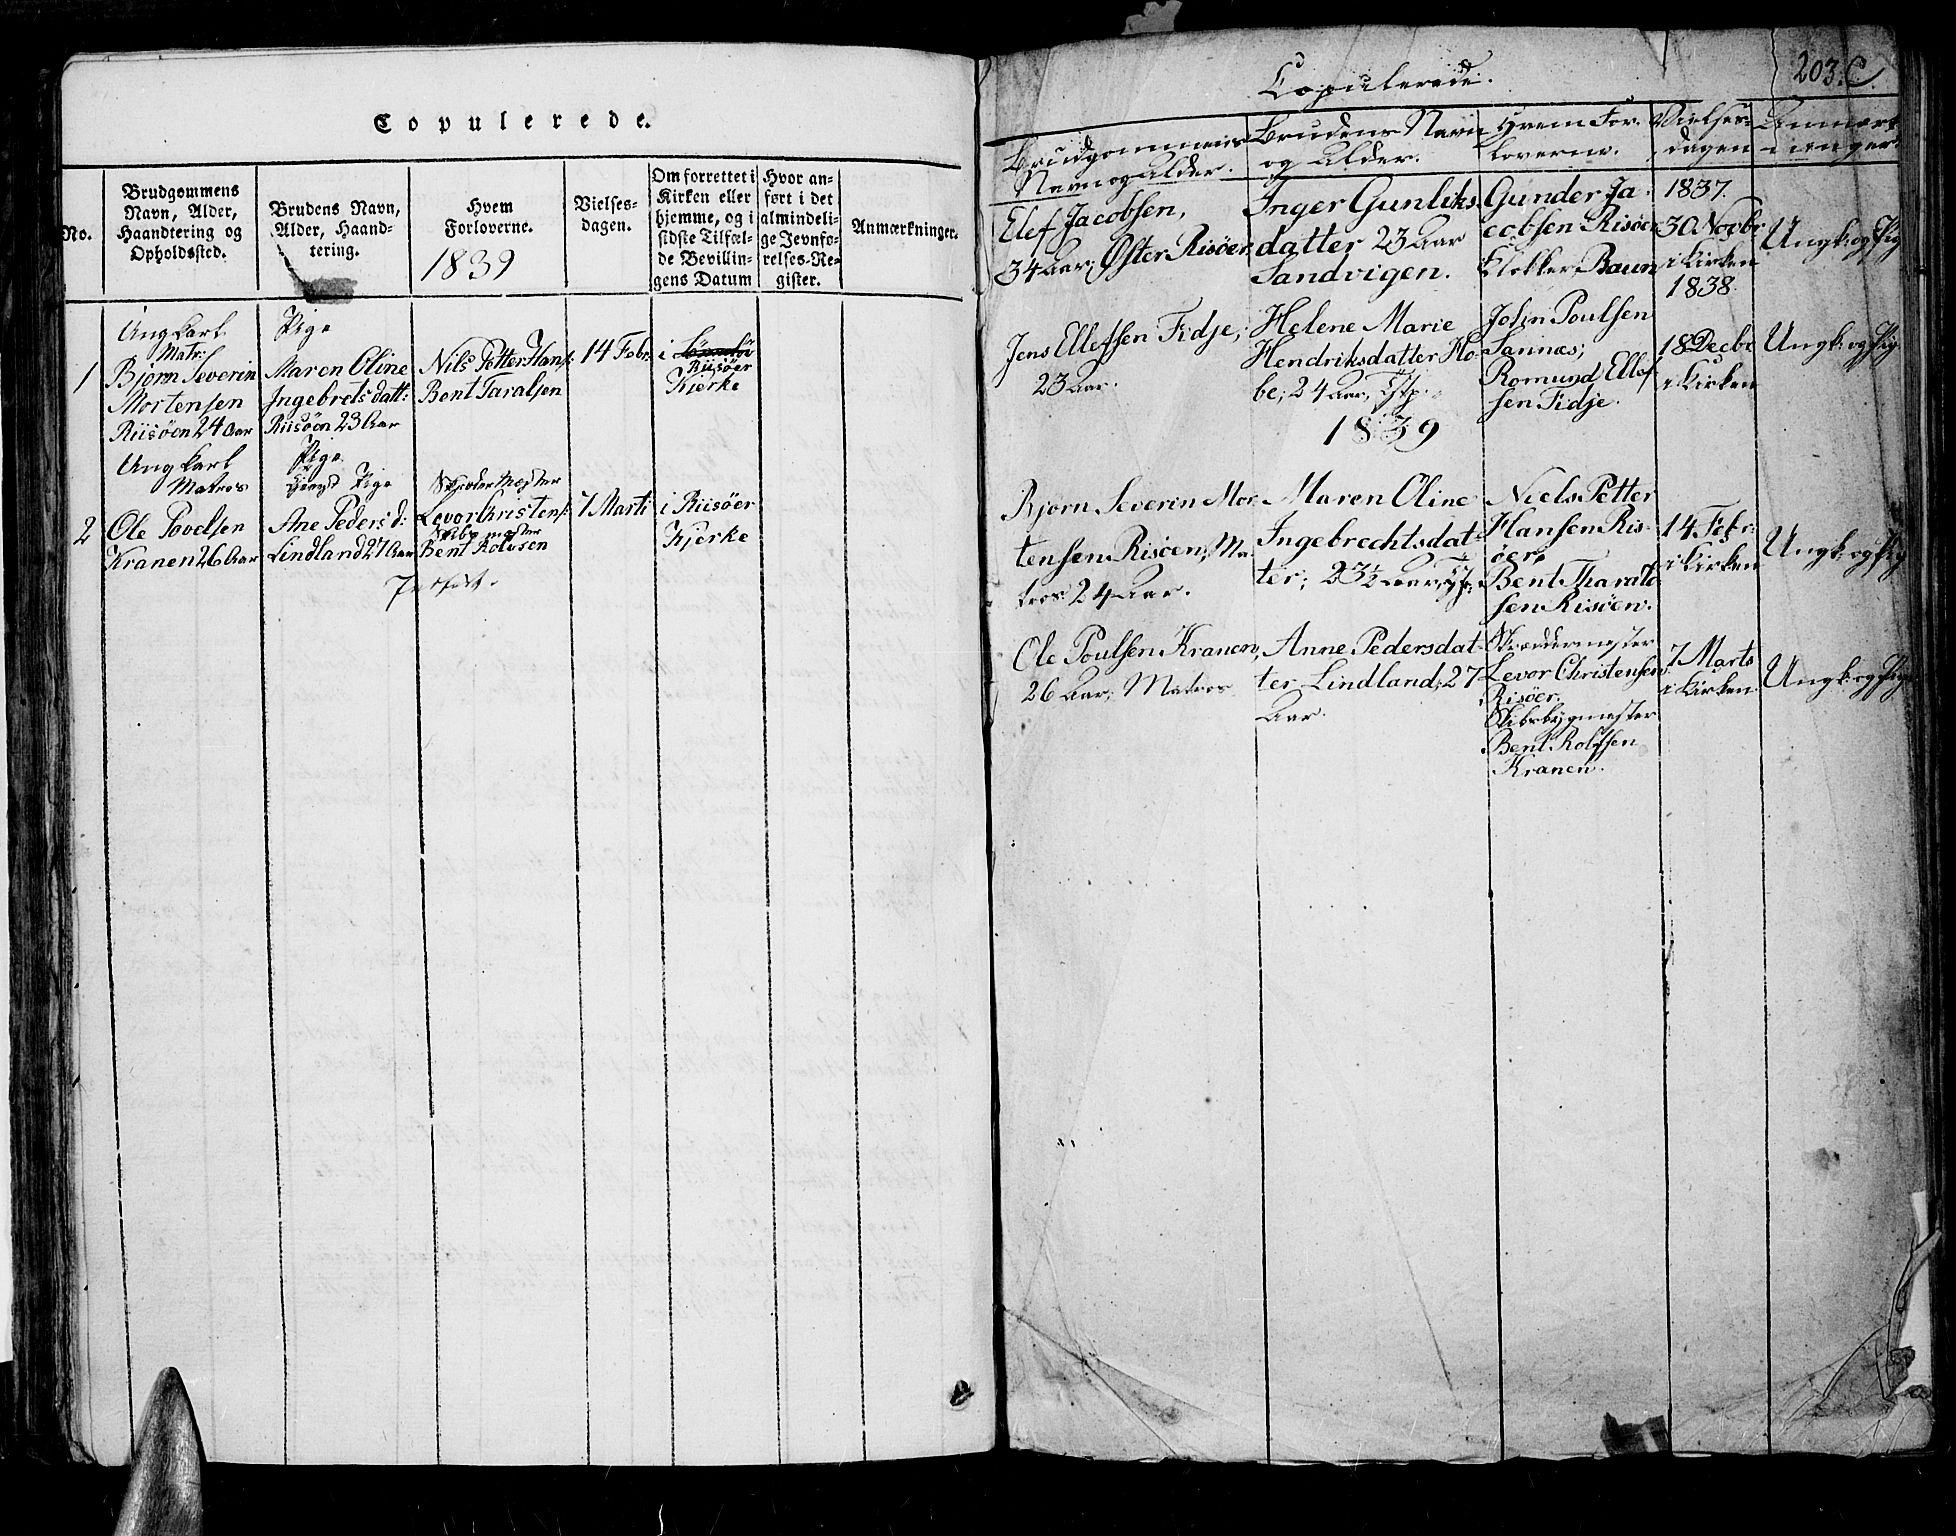 Copulerede.
No.
Brudgommens
Navn, Alder,
Haandtering og
Opholdssted.
Brudens Navn,
Alder, Haand-
tering.
Hvem
Forloverne.
1839
Vielses-
dagen.
Om forrettet i
Kirken eller
hjemme, og i
sidste Tilfæl-
de Bevillin-
gens Datum
Hvor an-
ført i det
almindeli-
ge Jevnfø-
relses-Re-
gister.
Anmærkninger.
1
Ungkarl
Matr:
Bjorn Severin
Mortensen
Riisöen 24 Aar
Pige
Maren Oline
Ingebrets datt:
Riisöen 23 Aar
Nils Petter Hans:
Bent Taralsen
14 Febr.
i
Riisöer
Kjerke
2
Ungkarl
Matros
Ole Povelsen
Kranen 26 Aar
Pige
Pige
Ane Peders d:
Lindland 27 Aar
Levor Christens:
Bent Rolvsen
7 Marti
i Riisöer
Kjerke
203.C.
Copulerede.
Brudgommens
Navn og Alder.
Brudens Navn
og Alder.
Hvem For-
loverne.
Vielses-
dagen
Anmærk-
ninger.
Elef Jacobsen,
34 Aar; Øster Risöer
Inger Gunliks-
datter 23 Aar
Sandvigen.
Gunder Ja-
cobsen Risöer
Klokker Baun
1837.
30 Novbr
i Kirken
Ungk: og Pig
1838.
Jens Ellefsen Fidje,
23 Aar.
Helene Marie
Hendriksdatter Ho-
be; 24 Aar,
John Poulsen
Sannæs;
Romund Ellef-
sen Fidje.
18 Decbr
i Kirken
Ungk: og Pig
1839
Bjorn Severin Mor-
tensen Risöen, Ma-
tros 24 Aar.
Maren Oline
Ingebrechtsdat-
ter; 23½ Aar,
Niels Petter
Hansen Ris-
öer,
Bent Tharald-
sen Risöen.
14 Febr:
i Kirken
Ungk: og Pig
Ole Poulsen Kranen,
26 Aar; Matros
Anne Pedersdat-
ter Lindland; 27
Aar.
Skreddermester
Levor Christensen
Risöer,
Skibsbygmester
Bent Rolfsen
Kranen.
7 Marts
i Kirken
Ungk: og Pig